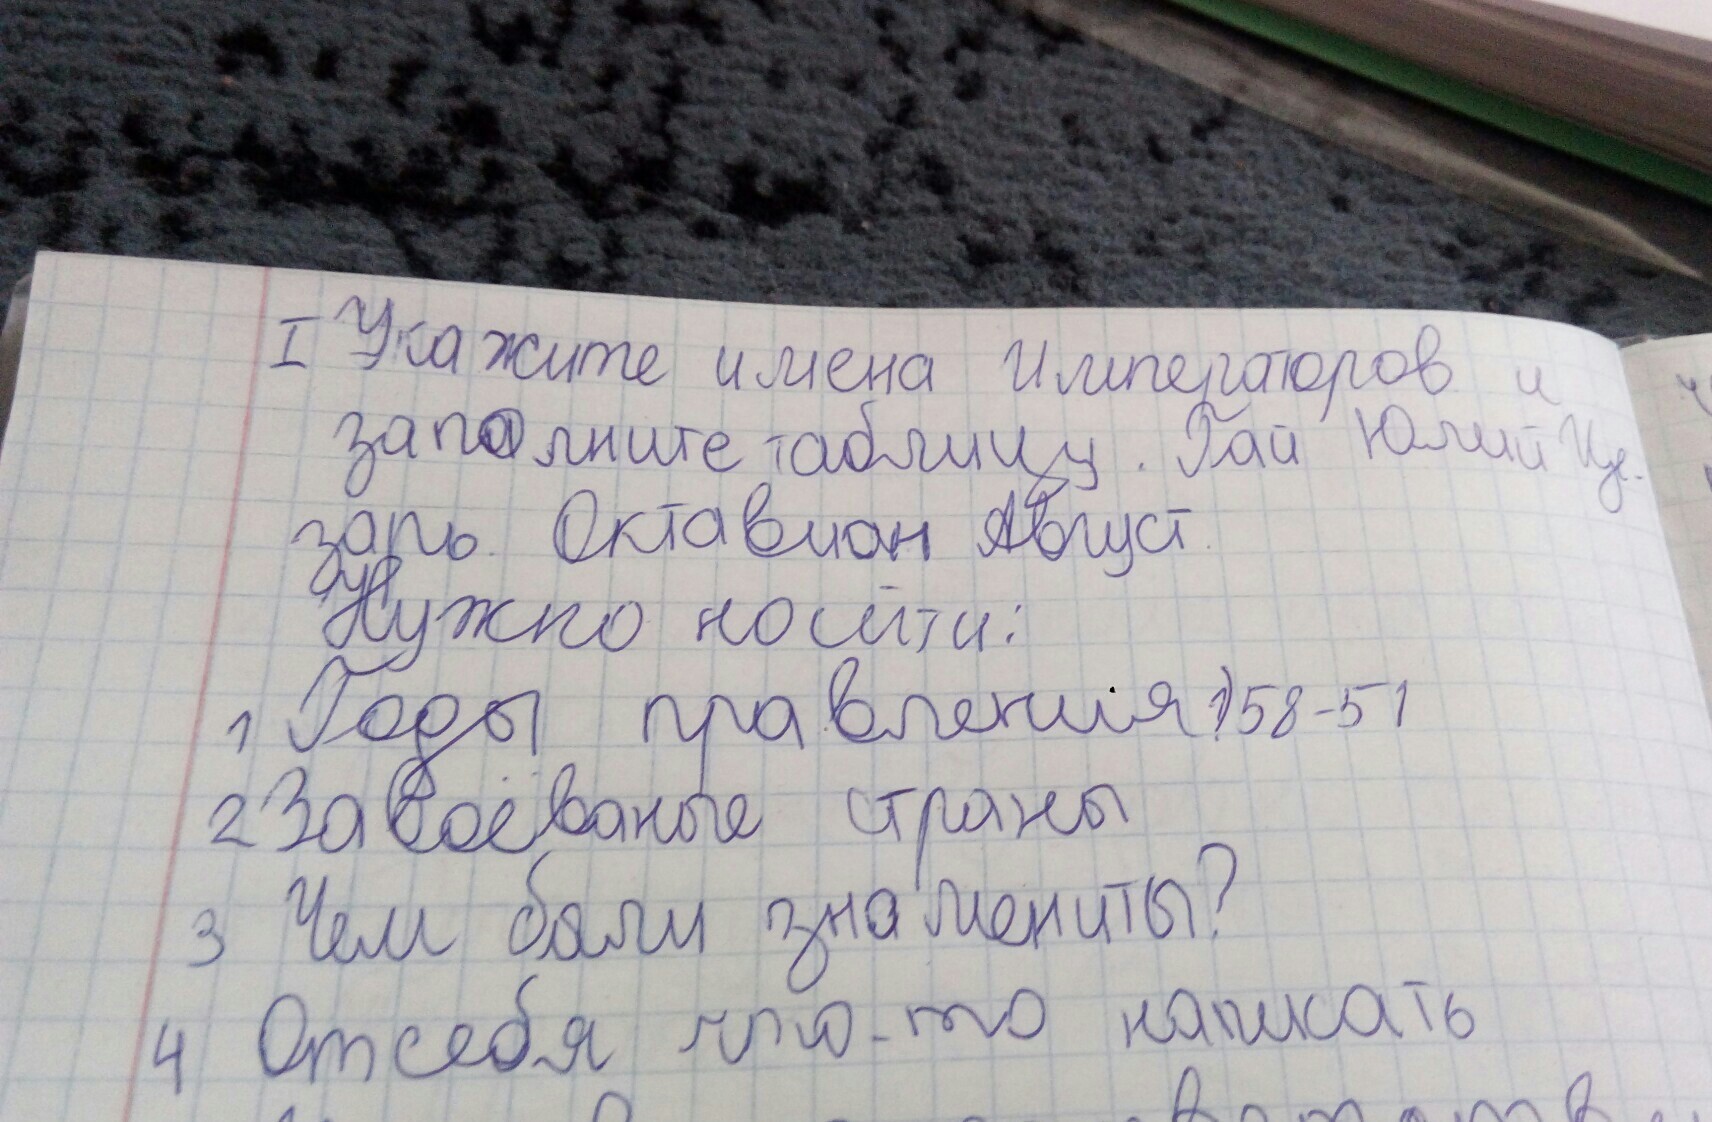 I Укажите имена Императоров и
заполните таблицу. Гай Юлий Це-
зарь. Октавиан Август.
Нужно нойти:
1 Годы правления 1) 58-51
2 Завоёваные страны
3 Чем были знамениты?
4 От себя что-то написать